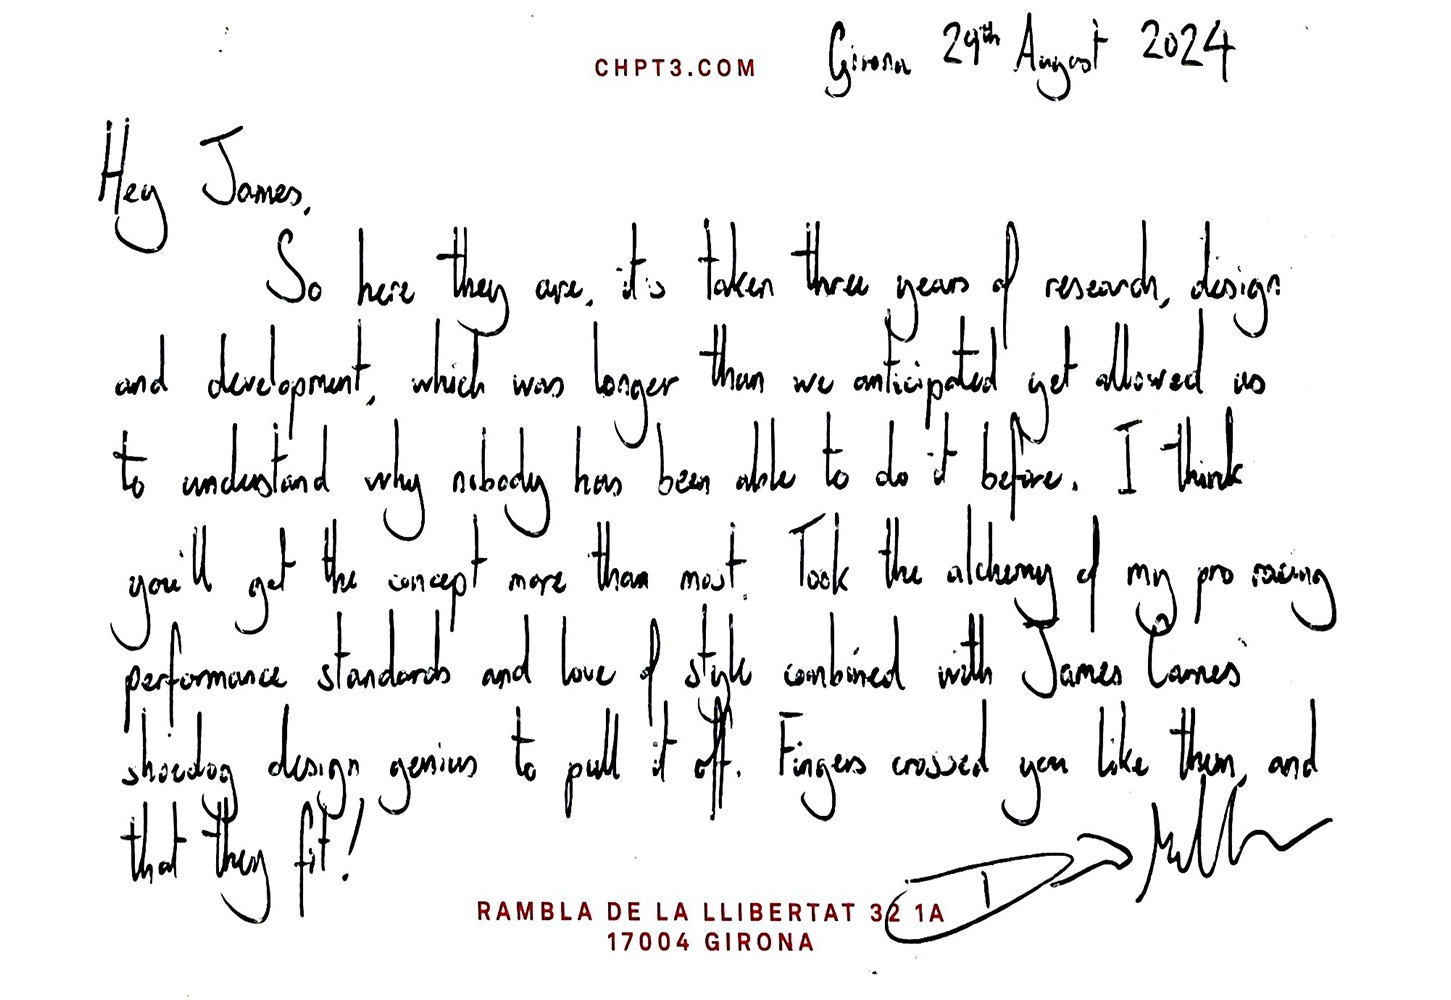 CHPT3.COM
Girona 29th August 2024
Hey James,
So here they are, it's taken three years of research, design
and development, which was longer than we anticipated yet allowed us
to understand why nobody has been able to do it before. I think
you'll get the concept more than most. Took the alchemy of my pro racing
performance standards and love of style combined with James Carnes'
shoedog design genius to pull it off. Fingers crossed you like them, and
that they fit!
RAMBLA DE LA LLIBERTAT 32 1A
17004 GIRONA